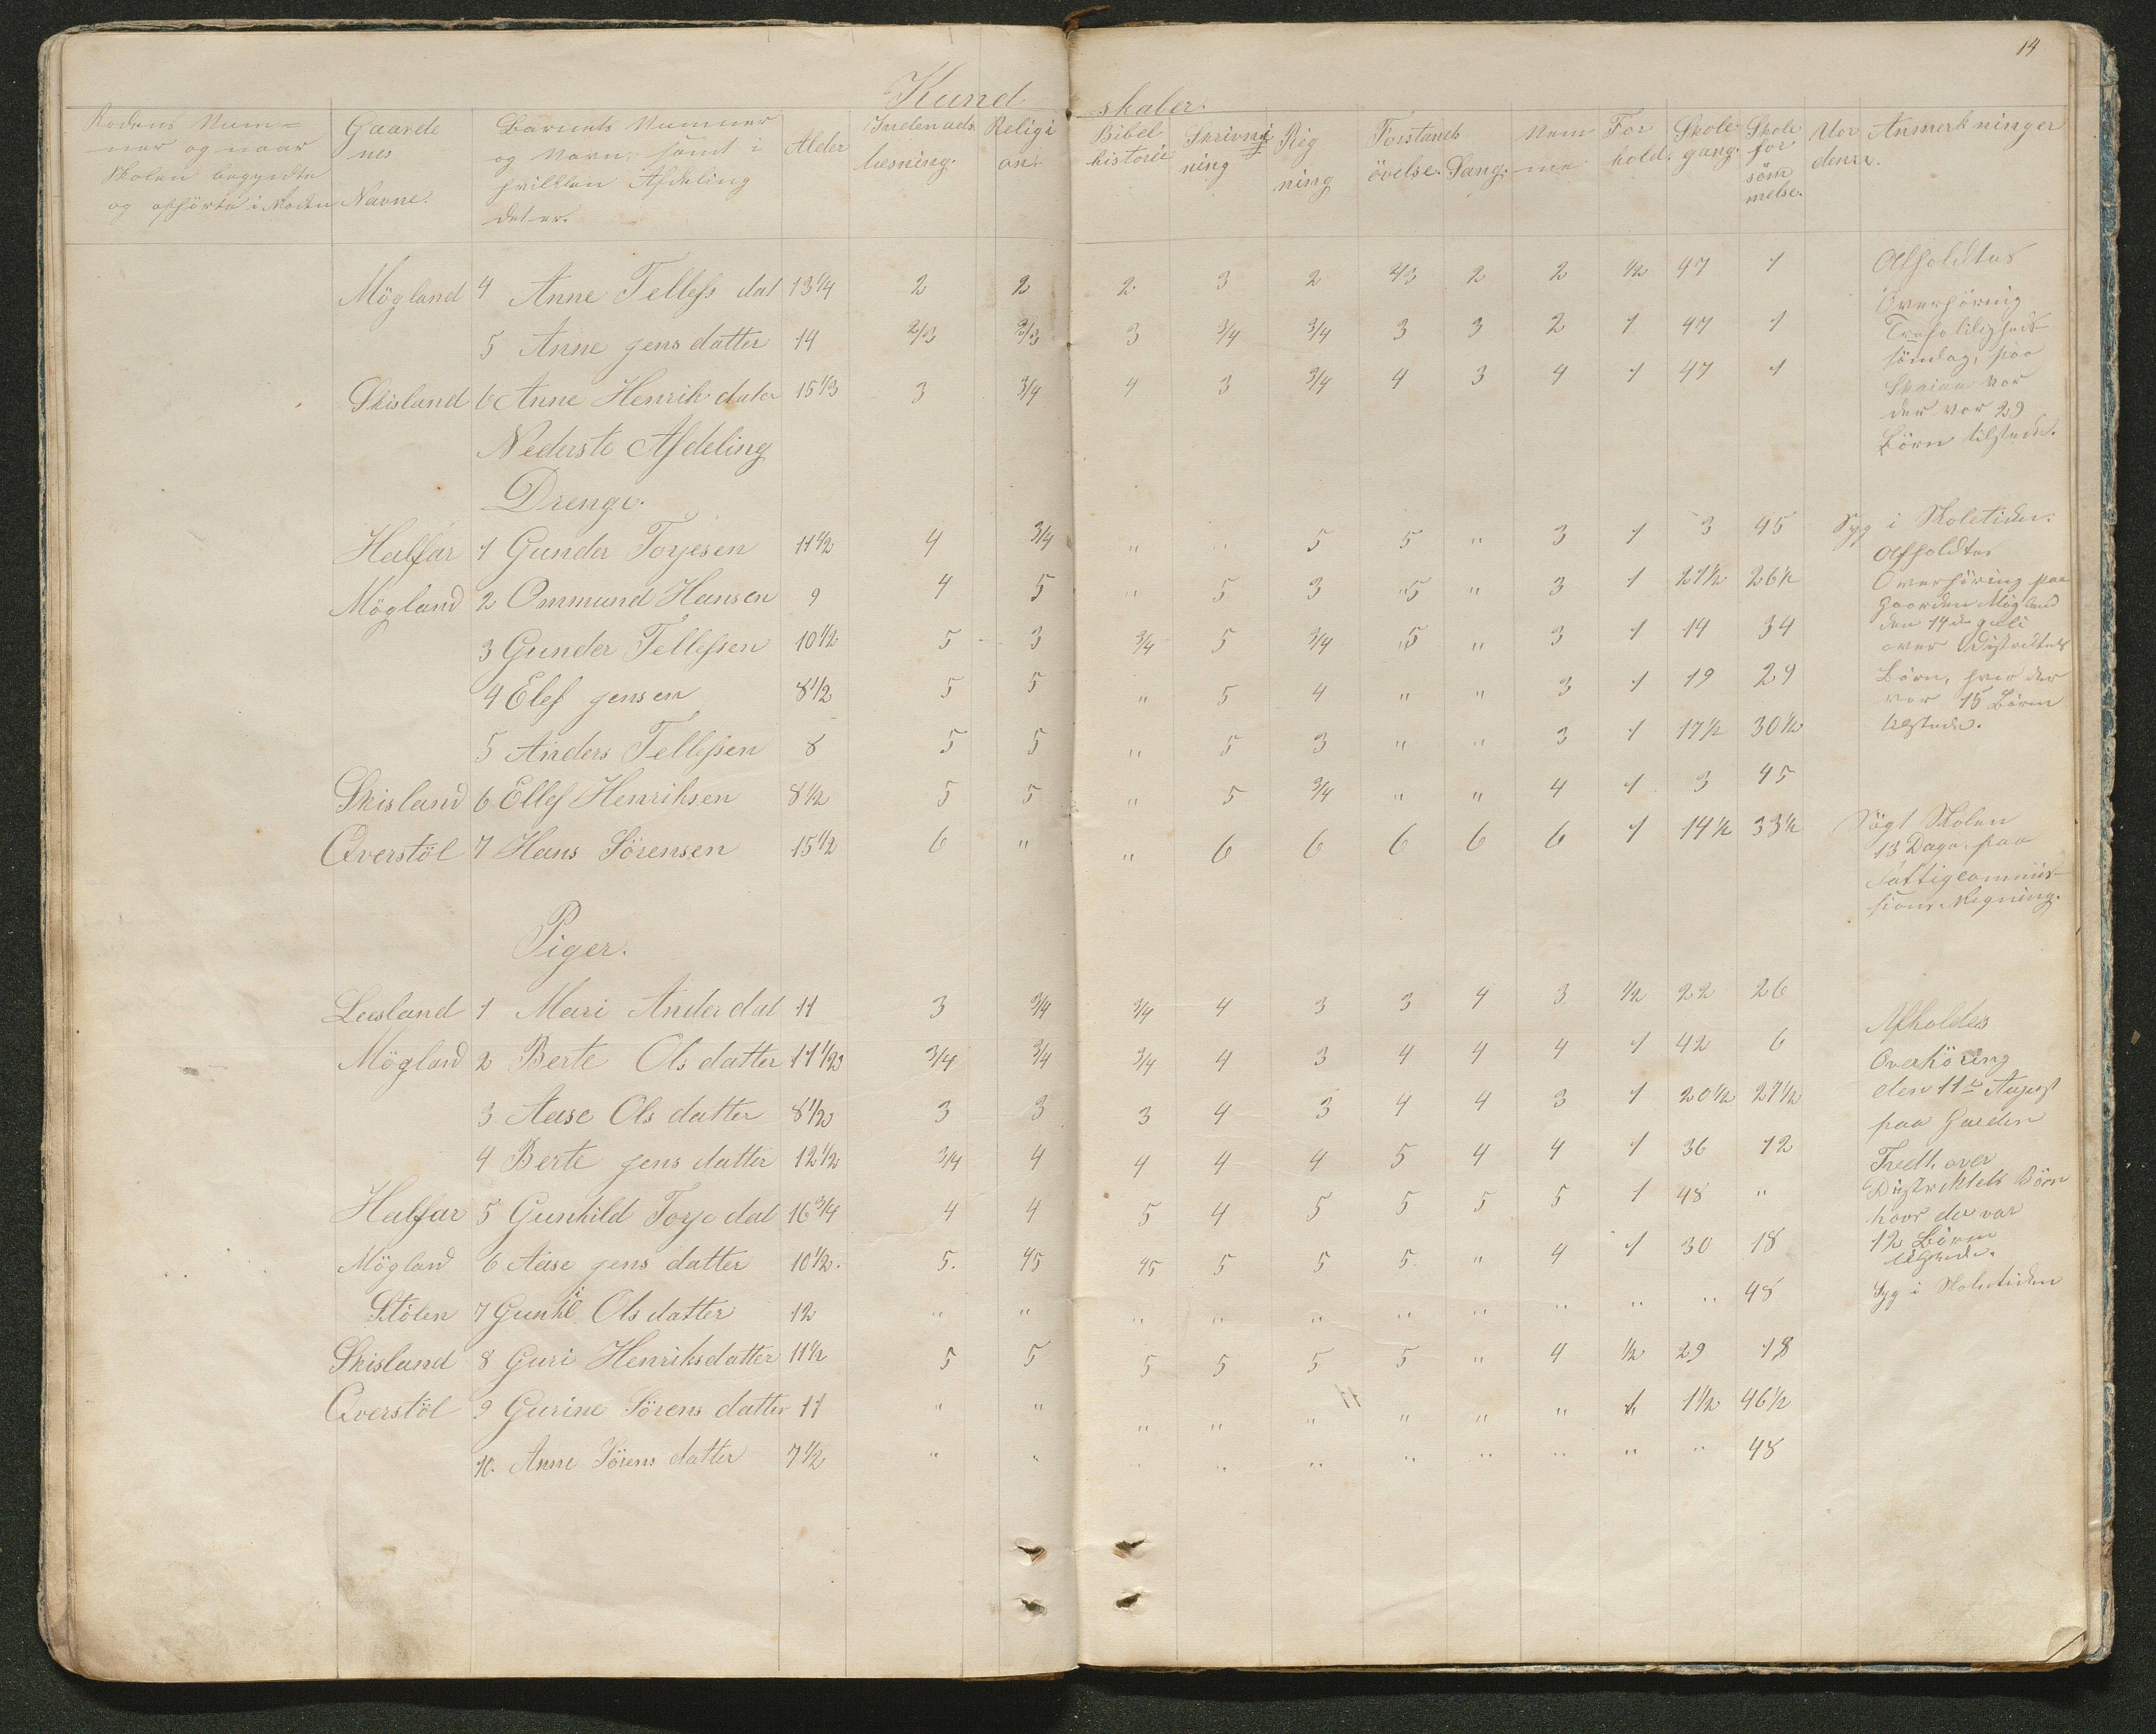 14
Kund skaber.
Rodens Num=
mer og naar
Skolen begyndte
og ophörte i Roden
Gaarde
nes
Navne.
Barnets Nummer
og Navn, samt i
hvilken Afdeling
det er.
Alder
Indenads
læsning.
Religi
on.
Bibel
historie
Skrivni
ning
Reg
ning
Forstands
övelse.
Sang.
Nem
me
For
hold.
Skole
gang.
Skole
for
söm
melse.
Anmerkninger
Mögland 4 Anne Tellefs dat 13 1/4 2 2 2 3 2 23 2 2 1/2 47 1
5 Anne jens datter 14 2/3 2/3 3 3/4 3/4 3 3 2 1 47 1
Skisland 6 Anne Henrik dater 15 1/3 3 3/4 4 3 3/4 4 3 4 1 47 1
Afholdtes
Overhöring
Trefoldigheds
söndag, paa
der var 29
Börn tilstede.
Nederste Afdeling
Drenge.
Halfar 1 Gunder Torjesen 11 1/2 4 3/4 " " 5 5 " 3 1 3 45 Syg i Skoletiden.
Mögland 2 Ommund Hansen 9 4 5 " 5 3 5 " 3 1 21 1/2 26 1/2
3 Gunder Tellefsen 10 1/2 5 3 3/4 5 3/4 5 " 3 1 14 34
4 Elef jensen 8 1/2 5 5 " 5 4 " " 3 1 19 29
5 Anders Tellefsen 8 5 5 " 5 3 " " 3 1 17 1/2 30 1/2
Skisland 6 Ellef Henriksen 8 1/2 5 5 " 5 3/4 " " 4 1 3 45
Qverstöl 7 Hans Sörensen 15 1/2 6 " " 6 6 6 6 6 1 14 1/2 33 1/2
Afholdtes
Overhöring paa
Gaarden Mögland
den 14de juli
over Distriktets
Börn, hvor der
var 15 Börn
tilstede.
Sögt Skolen
13 Dage paa
Fattigcommis-
sions Regning.
Piger.
Leesland 1 Mari Ander dat 11 3 3/4 3/4 4 3 3 4 3 1/2 22 26
Mögland 2 Berte Ols datter 11 1/2 3/4 3/4 3/4 4 3 4 4 4 1 42 6
3 Aase Ols datter 8 1/2 3 3 3 4 3 4 4 3 1 20 1/2 27 1/2
4 Berte jens datter 12 1/2 3/4 4 4 4 4 5 4 4 1 36 12
Halfar 5 Gunhild Torje dat 16 3/4 4 4 5 4 5 5 5 5 1 48 "
Mögland 6 Aase jens datter 10 1/2. 5. 45 45 5 5 5. " 4 1 30 18
Stölen 7 Gunhil Ols datter 12 " " " " " " " " " " 48 Syg i Skoletiden
Skisland 8 Guri Henriksdatter 11 1/2 5 5 5 5 5 5 " 4 1/2 29 18
Qverstöl 9 Gurine Sörens datter 11 " " " " " " " " 1 1 1/2 46 1/2
10. Anne Sörens datter 7 1/2 " " " " " " " " " " 48
Afholdes
Overhöring
den 11te August
paa Garden
over
Distriktets Börn
hvor der var
12 Börn
tilstede.